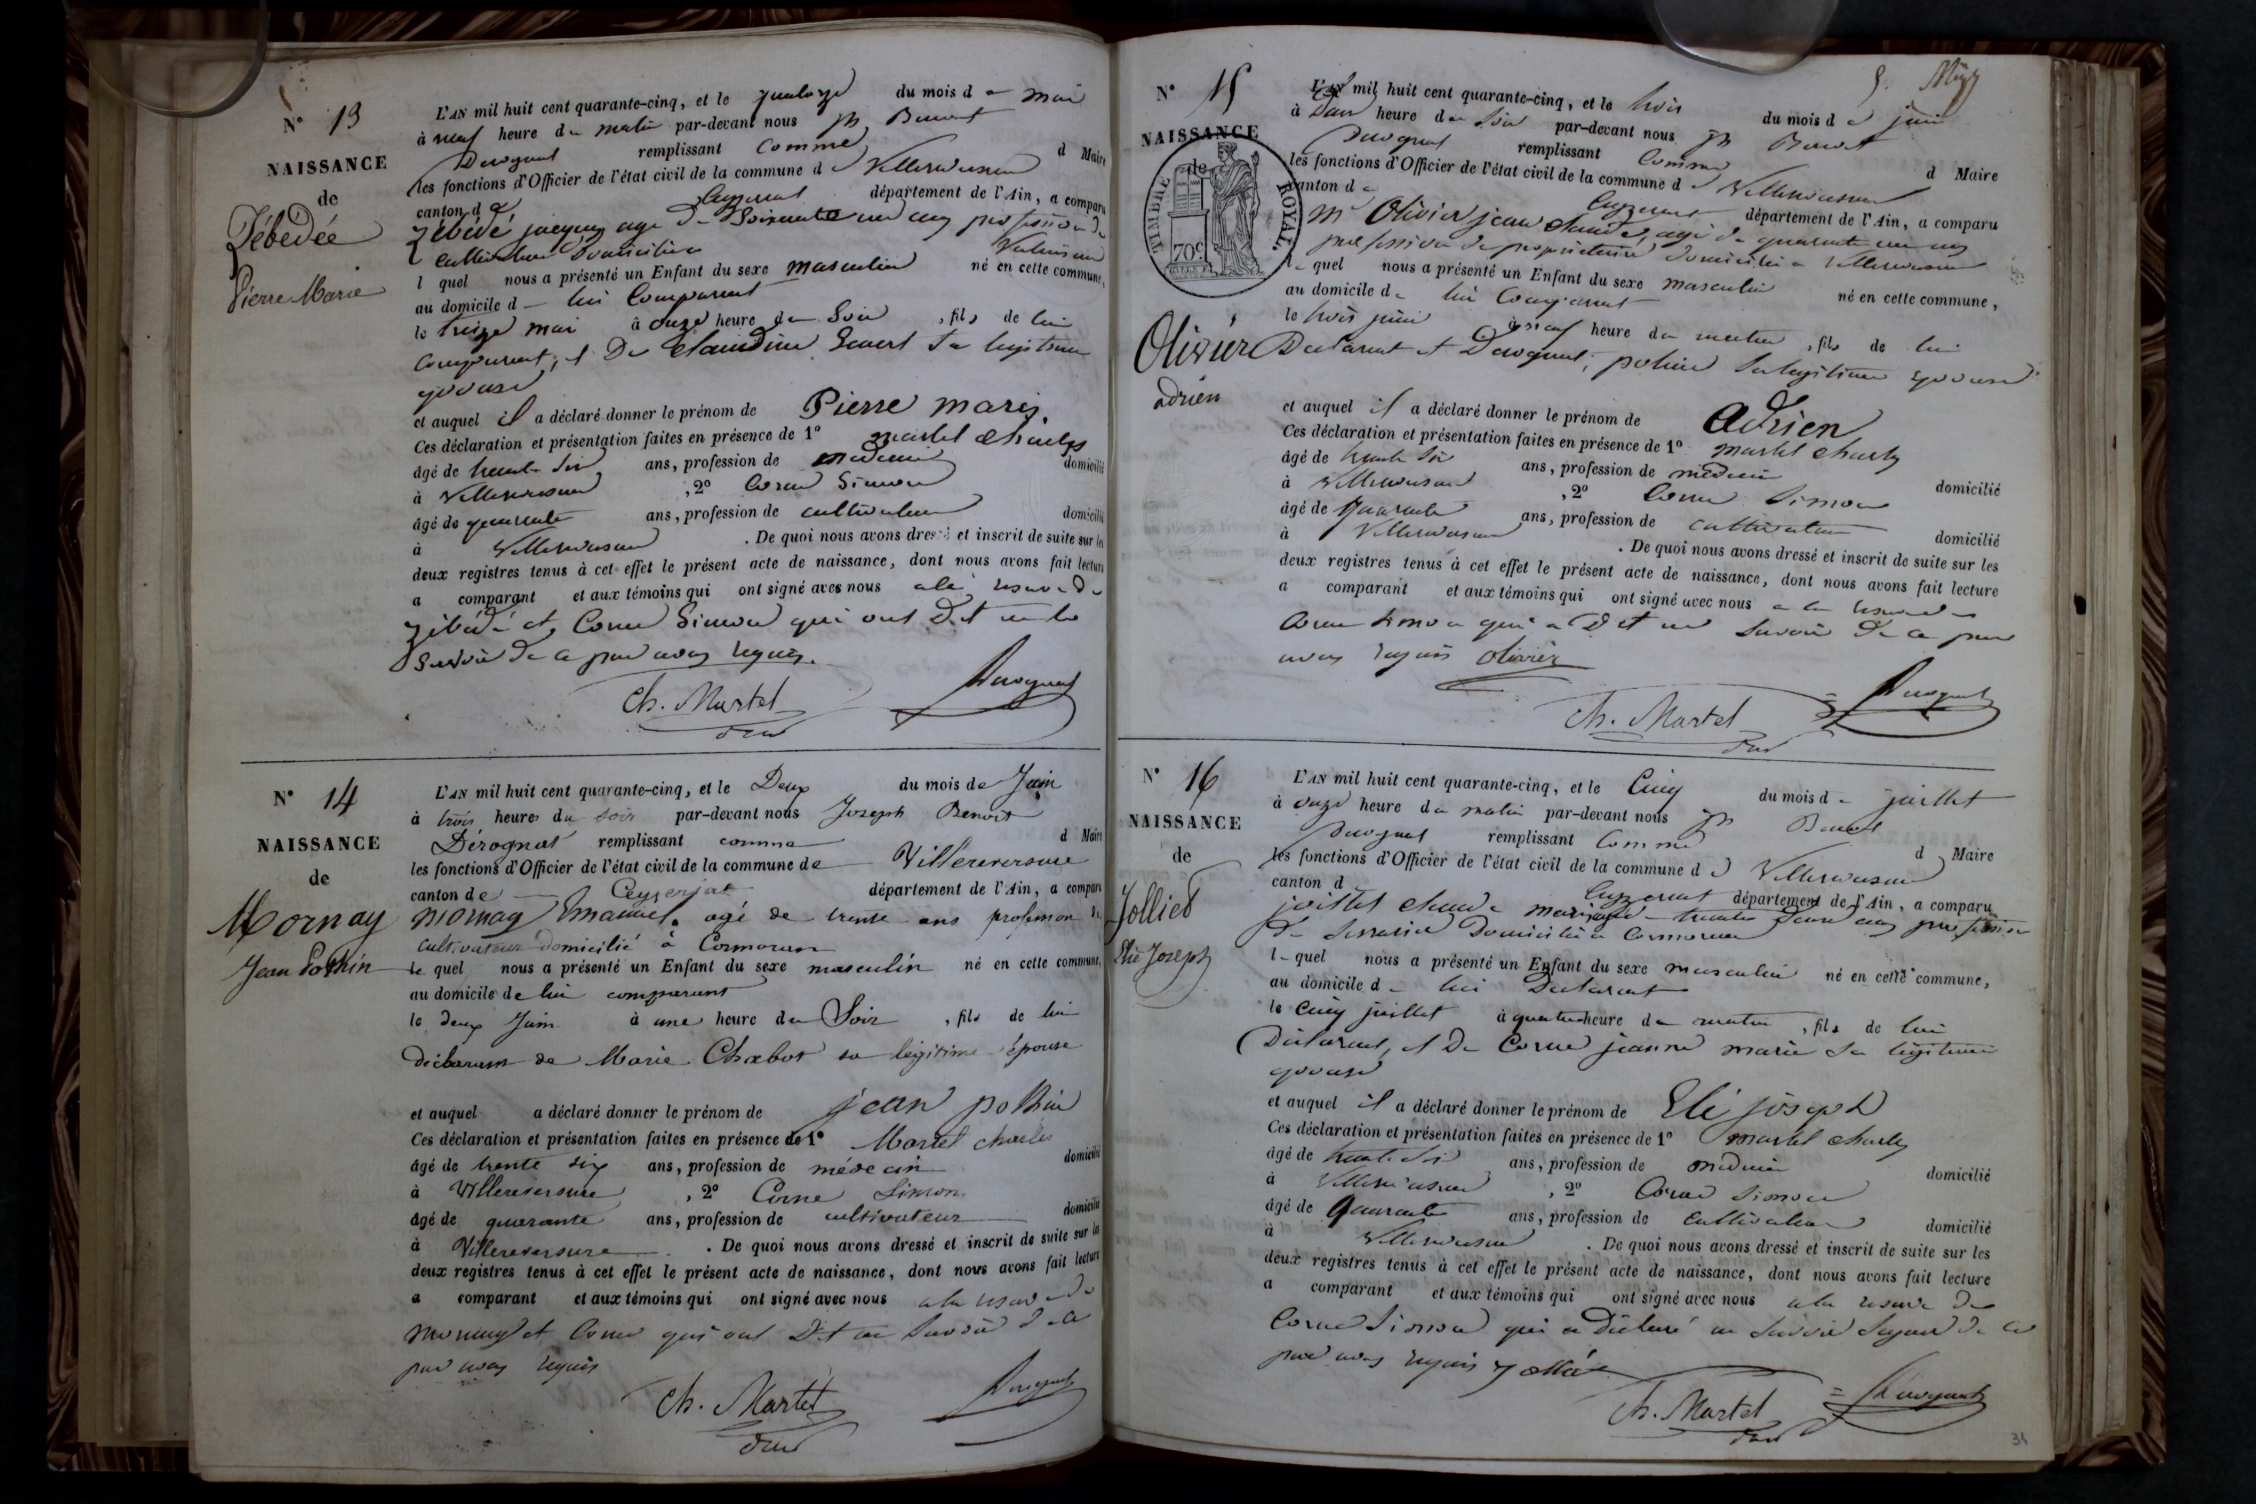 N° 13
NAISSANCE
de
Zébédée
Pierre Marie
L'AN mil huit cent quarante-cinq, et le quatorze du mois de mai
à neuf heure du matin par-devant nous jh Benoit
Derognat remplissant comme d Maire
les fonctions d'Officier de l'état civil de la commune d Villereversure
canton de Ceyzeriat département de l'Ain, a comparu
Zébédé jacques age de Soixante un ans profession de
cultivateur domicilié a
l quel nous a présenté un Enfant du sexe masculin né en cette commune,
au domicile d lui Comparant
le treize mai à onze heure du Soir , fils de lui
comparant, et De Claudine sa legitime
epouse
et auquel il a déclaré donner le prénom de Pierre marie
Ces déclaration et présentation faites en présence de 1° martel charles
âgé de trente Six ans, profession de medecin domicilié
à Villereversure , 2° Corne Simon
âgé de quarante ans, profession de cultivateur domicilié
à Villereversure . De quoi nous avons dressé et inscrit de suite sur les
deux registres tenus à cet effet le présent acte de naissance, dont nous avons fait lecture
a comparant et aux témoins qui ont signé avec nous a la reserve de
Zébédé et Corne Simon qui ont Dit ne le
Savoir De ce faire avons requis.
Ch. Martel
Derognat
N° 14
NAISSANCE
de
Mornay
Jean Pothin
L'AN mil huit cent quarante-cinq, et le Deux du mois de Juin
à trois heures du soir par-devant nous Joseph Benoit
Dérognat remplissant comme d Maire
les fonctions d'Officier de l'état civil de la commune de Villereversure
canton de Ceyzeriat département de l'Ain, a comparu
mornay Emanuel agé de trente ans profession de
cultivateur domicilié à Cormoran
le quel nous a présenté un Enfant du sexe masculin né en cette commune,
au domicile de lui comparant
le deux Juin à une heure du Soir , fils de lui
déclarant de Marie Chabot sa légitime épouse
et auquel a déclaré donner le prénom de jean pothin
Ces déclaration et présentation faites en présence de 1° Martel charles
âgé de trente six ans, profession de médecin domicilié
à Villereversure , 2° Corne Simon
âgé de quarante ans, profession de cultivateur domicilié
à Villereversure . De quoi nous avons dressé et inscrit de suite sur les
deux registres tenus à cet effet le présent acte de naissance, dont nous avons fait lecture
a comparant et aux témoins qui ont signé avec nous a la reserve de
mornay et Corne qui ont Dit ne Savoir de ce
faire avons requis
Ch. Martel
Derognat
N° 15
NAISSANCE
de
TIMBRE ROYAL
70c
Olivier
adrien
L'AN mil huit cent quarante-cinq, et le trois du mois de juin
à heure du Soir par-devant nous jh Benoit
Derognat remplissant Comme d Maire
les fonctions d'Officier de l'état civil de la commune d Villereversure
canton de Ceyzeriat département de l'Ain, a comparu
Mr Olivier jean claude, agé de quarante un ans
profession de propriétaire domicilié a Villereversure
le quel nous a présenté un Enfant du sexe masculin né en cette commune,
au domicile de lui Comparant
le trois juin à neuf heure du matin , fils de lui
Declarant et Derognat, poline Sa legitime epouse
et auquel il a déclaré donner le prénom de Adrien
Ces déclaration et présentation faites en présence de 1° martel charles
âgé de trente six ans, profession de médecin domicilié
à Villereversure , 2° Corne Simon
âgé de quarante ans, profession de cultivateur domicilié
à Villereversure . De quoi nous avons dressé et inscrit de suite sur les
deux registres tenus à cet effet le présent acte de naissance, dont nous avons fait lecture
a comparant et aux témoins qui ont signé avec nous a la reserve de
Corne Simon qui a Dit ne Savoir De ce faire
avons requis Olivier
Ch. Martel
Derognat
N° 16
NAISSANCE
de
Jolliet
Elie Joseph
L'AN mil huit cent quarante-cinq, et le Cinq du mois de juillet
à onze heure du matin par-devant nous jh Benoit
Derognat remplissant Comme d Maire
les fonctions d'Officier de l'état civil de la commune d Villereversure
canton d Ceyzeriat département de l'Ain, a comparu
joillet claude marie agé trente deux ans profession
De Domicilié a Cormoran
l quel nous a présenté un Enfant du sexe masculin né en cette commune,
au domicile d lui Declarant
le cinq juillet à quatre heure du matin , fils de lui
Declarant, et De Corne jeanne marie Sa legitime
epouse
et auquel il a déclaré donner le prénom de Elie joseph
Ces déclaration et présentation faites en présence de 1° martel charles
âgé de trente Six ans, profession de médecin domicilié
à Villereversure , 2° Corne Simon
âgé de quarante ans, profession de Cultivateur domicilié
à Villereversure . De quoi nous avons dressé et inscrit de suite sur les
deux registres tenus à cet effet le présent acte de naissance, dont nous avons fait lecture
a comparant et aux témoins qui ont signé avec nous a la reserve de
Corne Simon qui a Déclaré ne Savoir Signer De ce
faire avons requis
Ch. Martel
Derognat
34